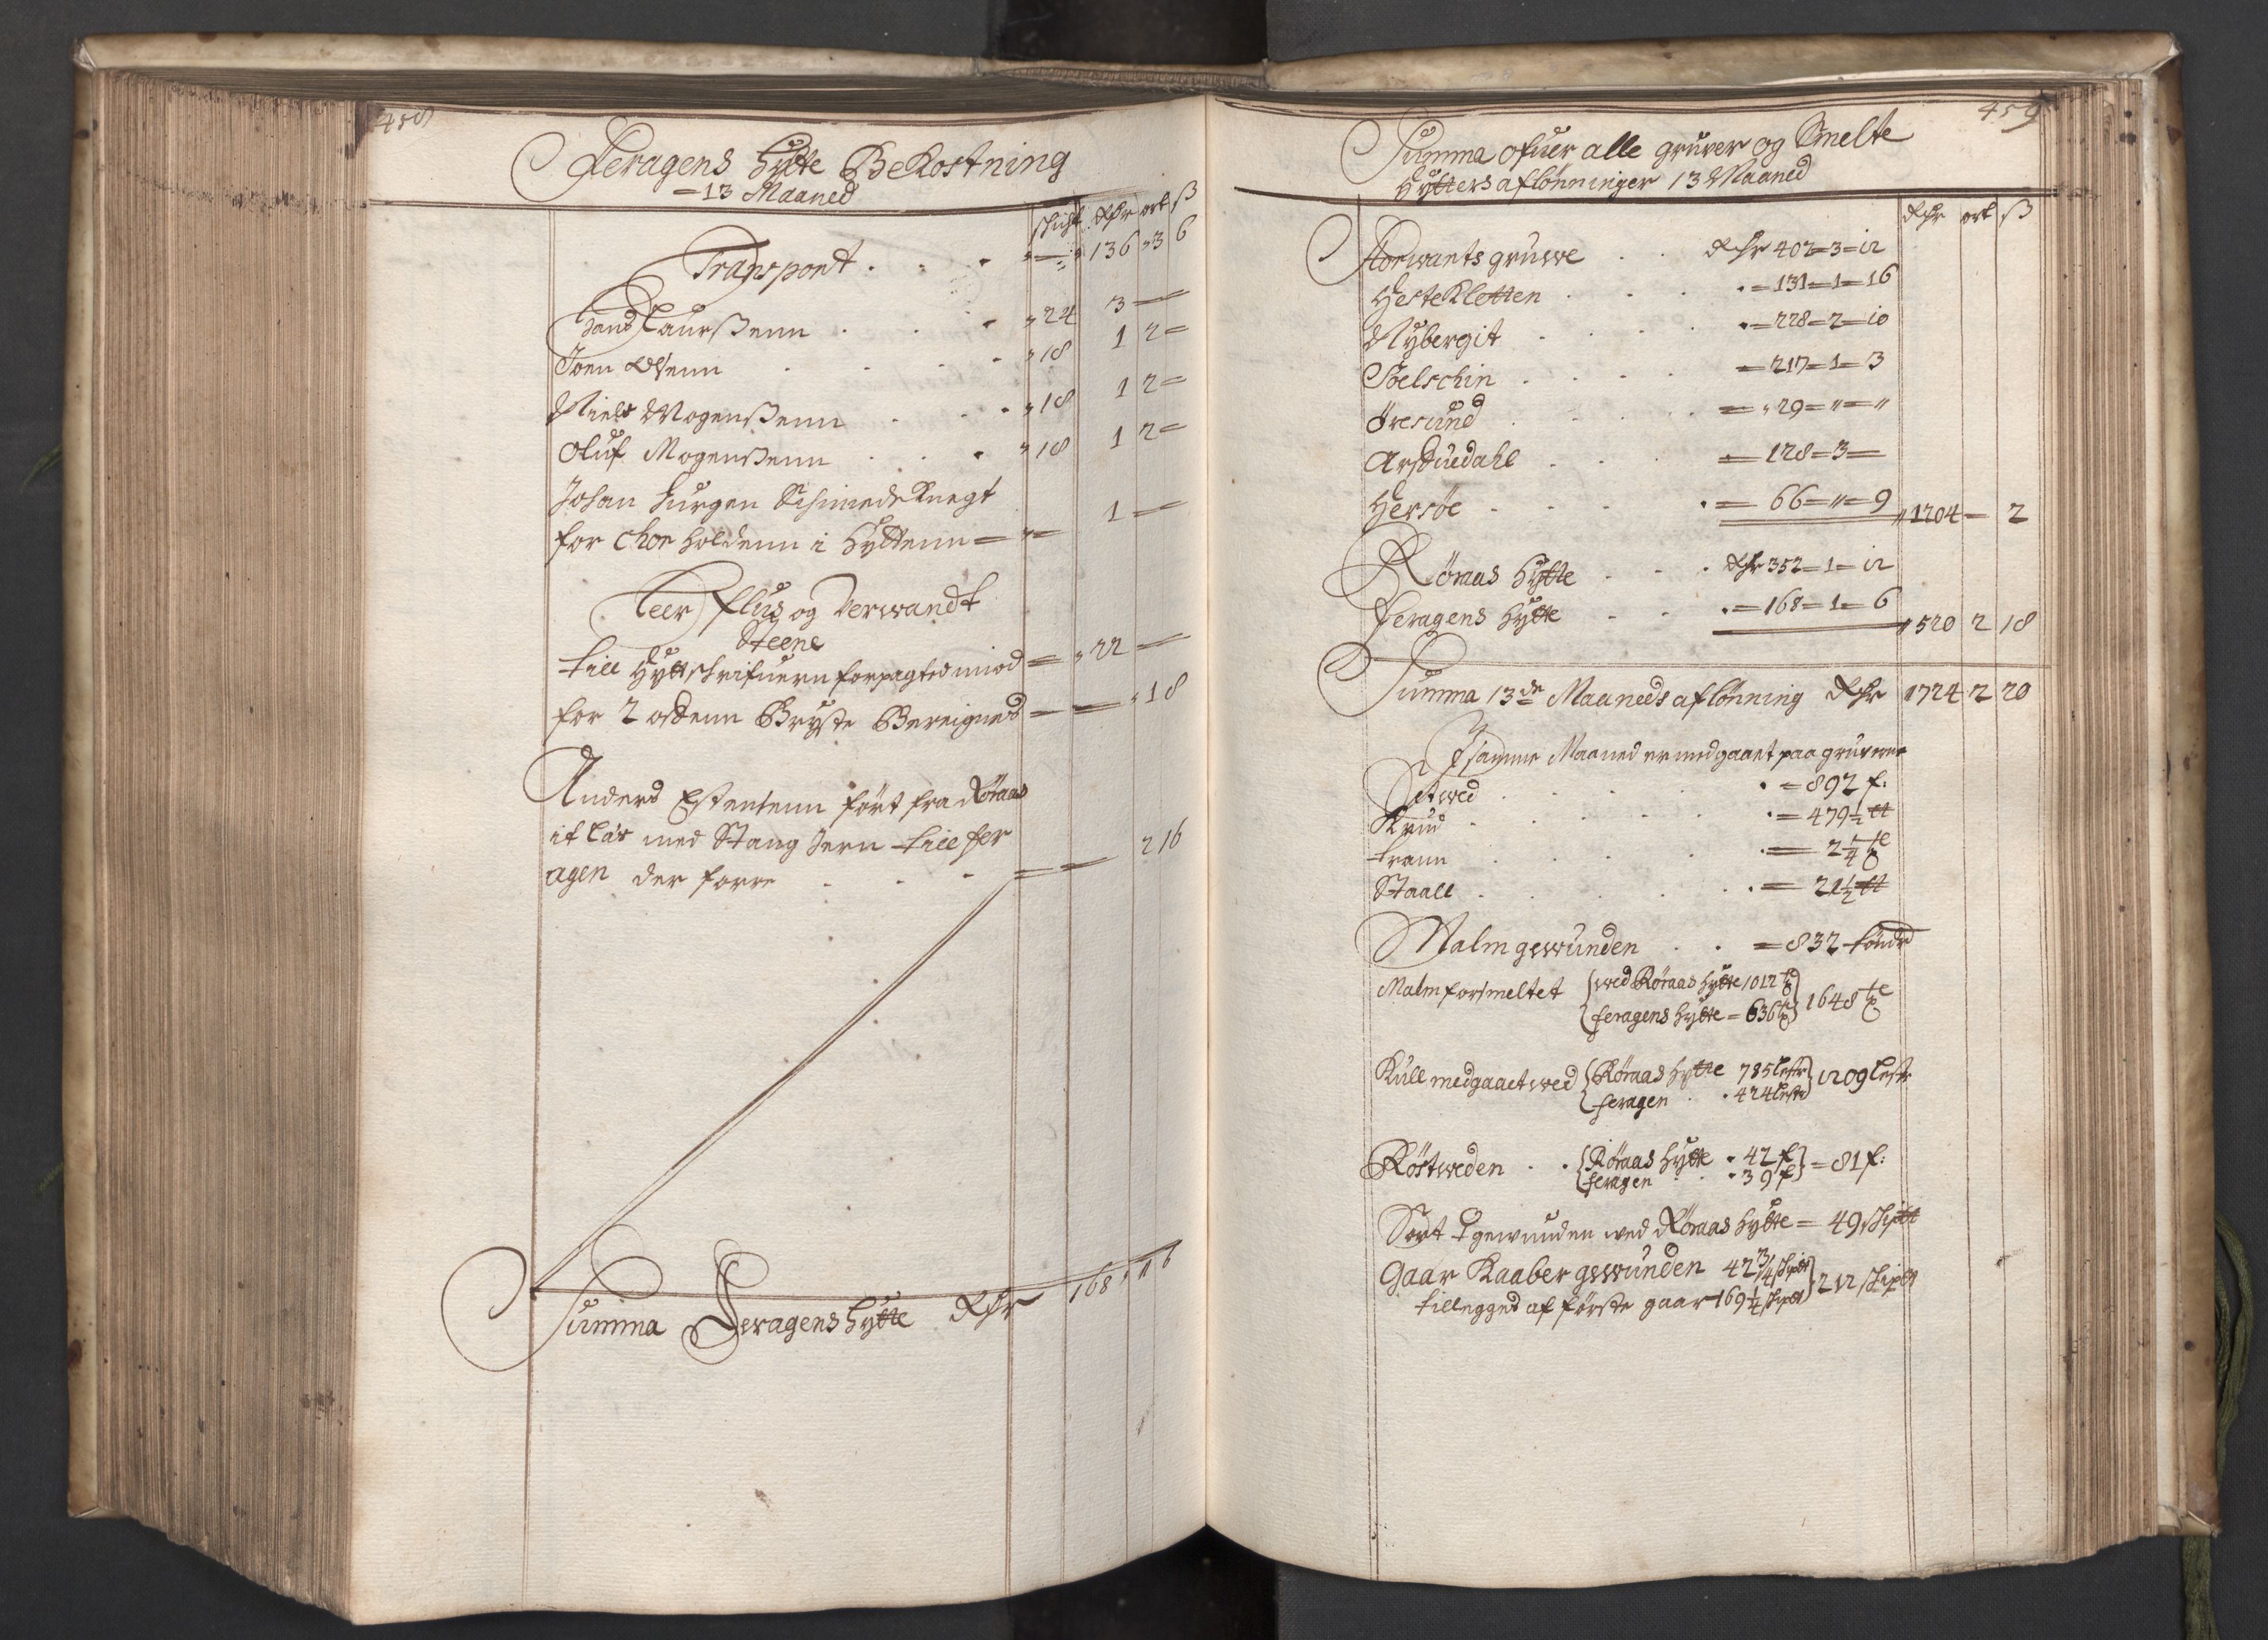 458
Feragens Hytte BeKostning
=13 Maaned
schicht Rdr ort ß
Transport . . . 136 3 6
Hans Laurßenn . . . 24 3 —
Joen Olsenn . . . 18 1 2 =
Niels Mogenßenn . . . 18 1 2 =
Oluf Mogenßenn . . . 18 1 2 =
Johan Jurgen Schmede Knegt
for chor holdenn i Hyttenn = 1 —
Leer flus og Verwandt
Steene
till Hyttschrifuern forpagted imod = 22 —
for 2 Bryste Bereigned — 18
Anders Estensenn fört fra Röraas
it las med Stang Jern till fer
agen der forre . . . 2 16
Summa Feragens Hytte Rdr 168 1 6
459
Summa ofuer alle gruver og Smelte
Hytters aflönninger 13 Maaned
Rdr ort ß
Storwants gruwe . . Rdr 402=3=12
HesteKletten . . . =131=1=16
Nybergit . . . =228=2=10
Söelschin . . . =217=1=3
Öresund . . . = 29="="
Arstuedahl . . . = 128=3=
Hersöe . . . = 66="=9 1204 — 2
Röraas Hytte . . . Rdr 352=1=12
Feragens Hytte . . . =168=1=6 520 2 18
Summa 13de Maaneds aflönning Rdr 1724 2 20
I samme Maaned er medgaaet paa gruverne
Setwed . . . = 892 f:
Krud . . . = 479½ ℔
trann . . . = 2¼
Staall . . . = 21½ ℔
Malm gewunden . . = 832 tönder
Malm forsmeltet { wed Röraas Hytte 1012
{ feragens Hytte = 636 } 1648
Kull medgaaet wed { Röraas Hytte 785 lester } 1209 lester
{ feragen . . 424 lester
Röstweden . . { Röraas Hytte . 42 f } = 81 f:
{ feragen . . 39 f
Sort gewunden wed Röraas Hytte = 49 schip℔
Gaar Kaaber gewunden 42¾ schip℔ } 212 schip℔
tillegged af förste gaar 169¼ schip℔